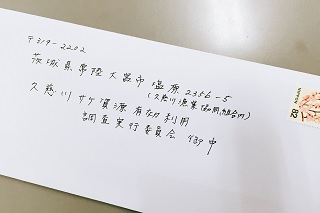 〒319-2202
茨城県常陸大宮市塩原2356-5
(久慈川漁業協同組合内)
久慈川サケ資源有効利用
調査実行委員会 御中
82